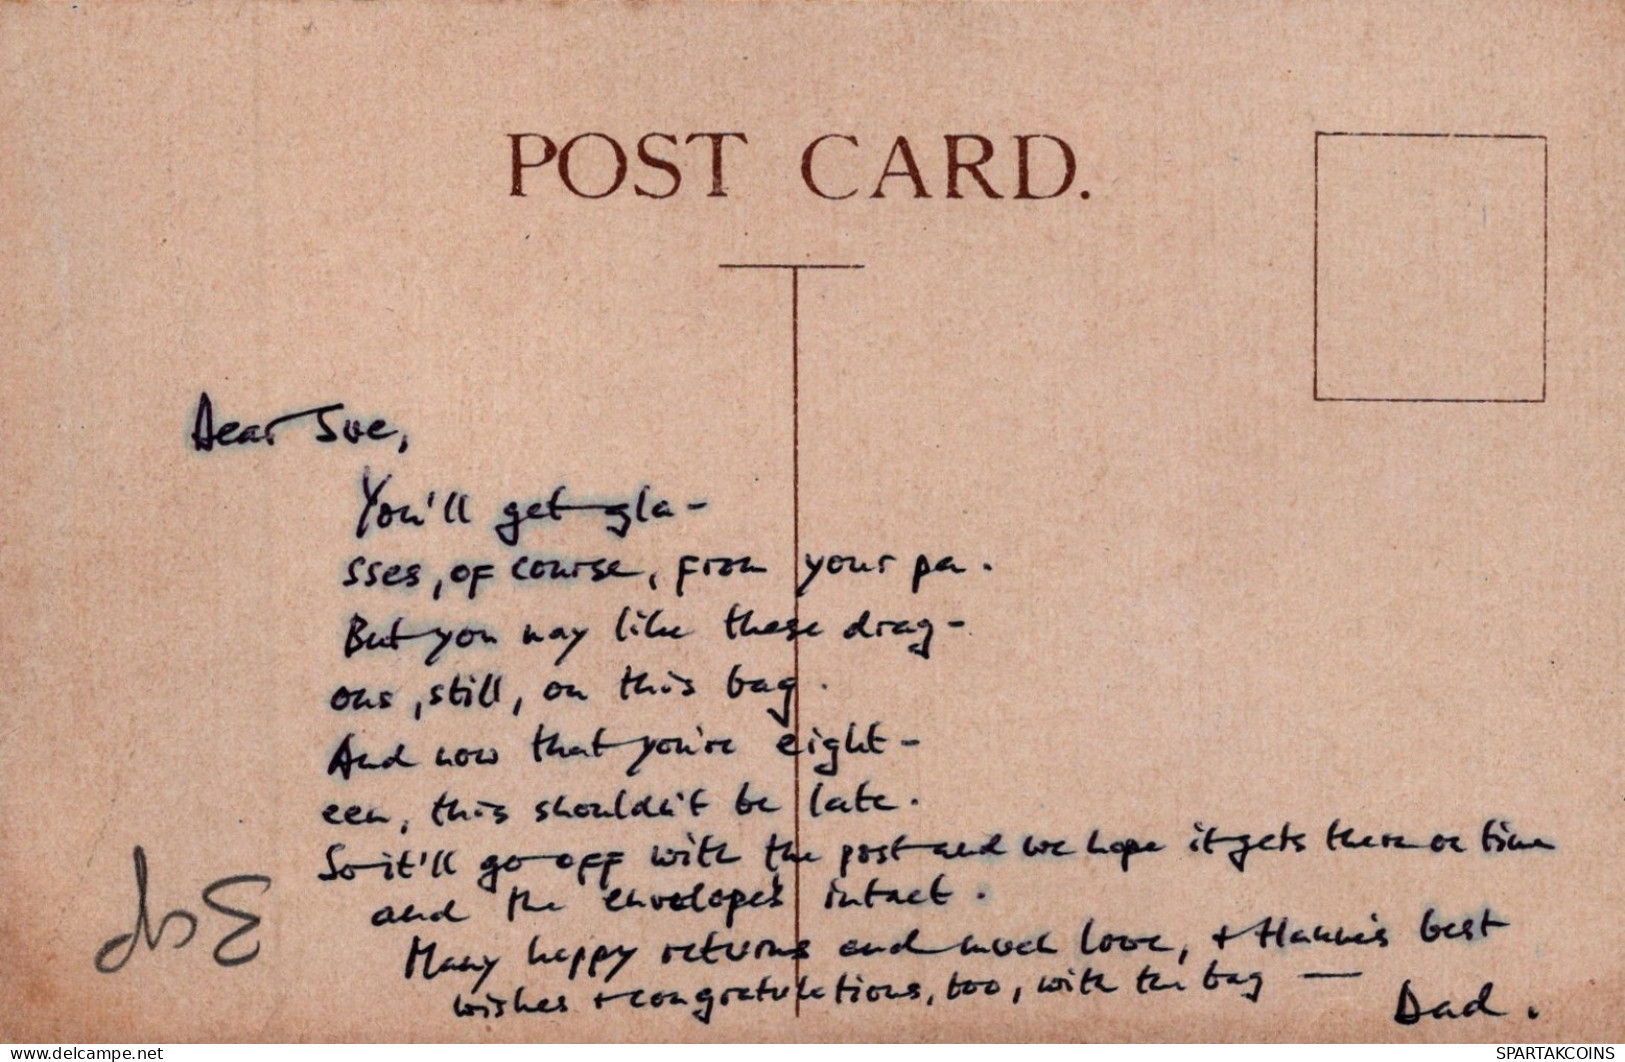 POST CARD.
Dear Sue,
You'll get gla-
sses, of course, from your pa.
But you may like these drag-
ons, still, on this bag.
And now that you're eight-
een, this shouldn't be late.
So it'll go off with the post and we hope it gets there on time
and the envelope's intact.
Many happy returns and much love, + Hanni's best
wishes + congratulations, too, with the bag —
Dad.
delcampe.net
SPARTAKCOINS